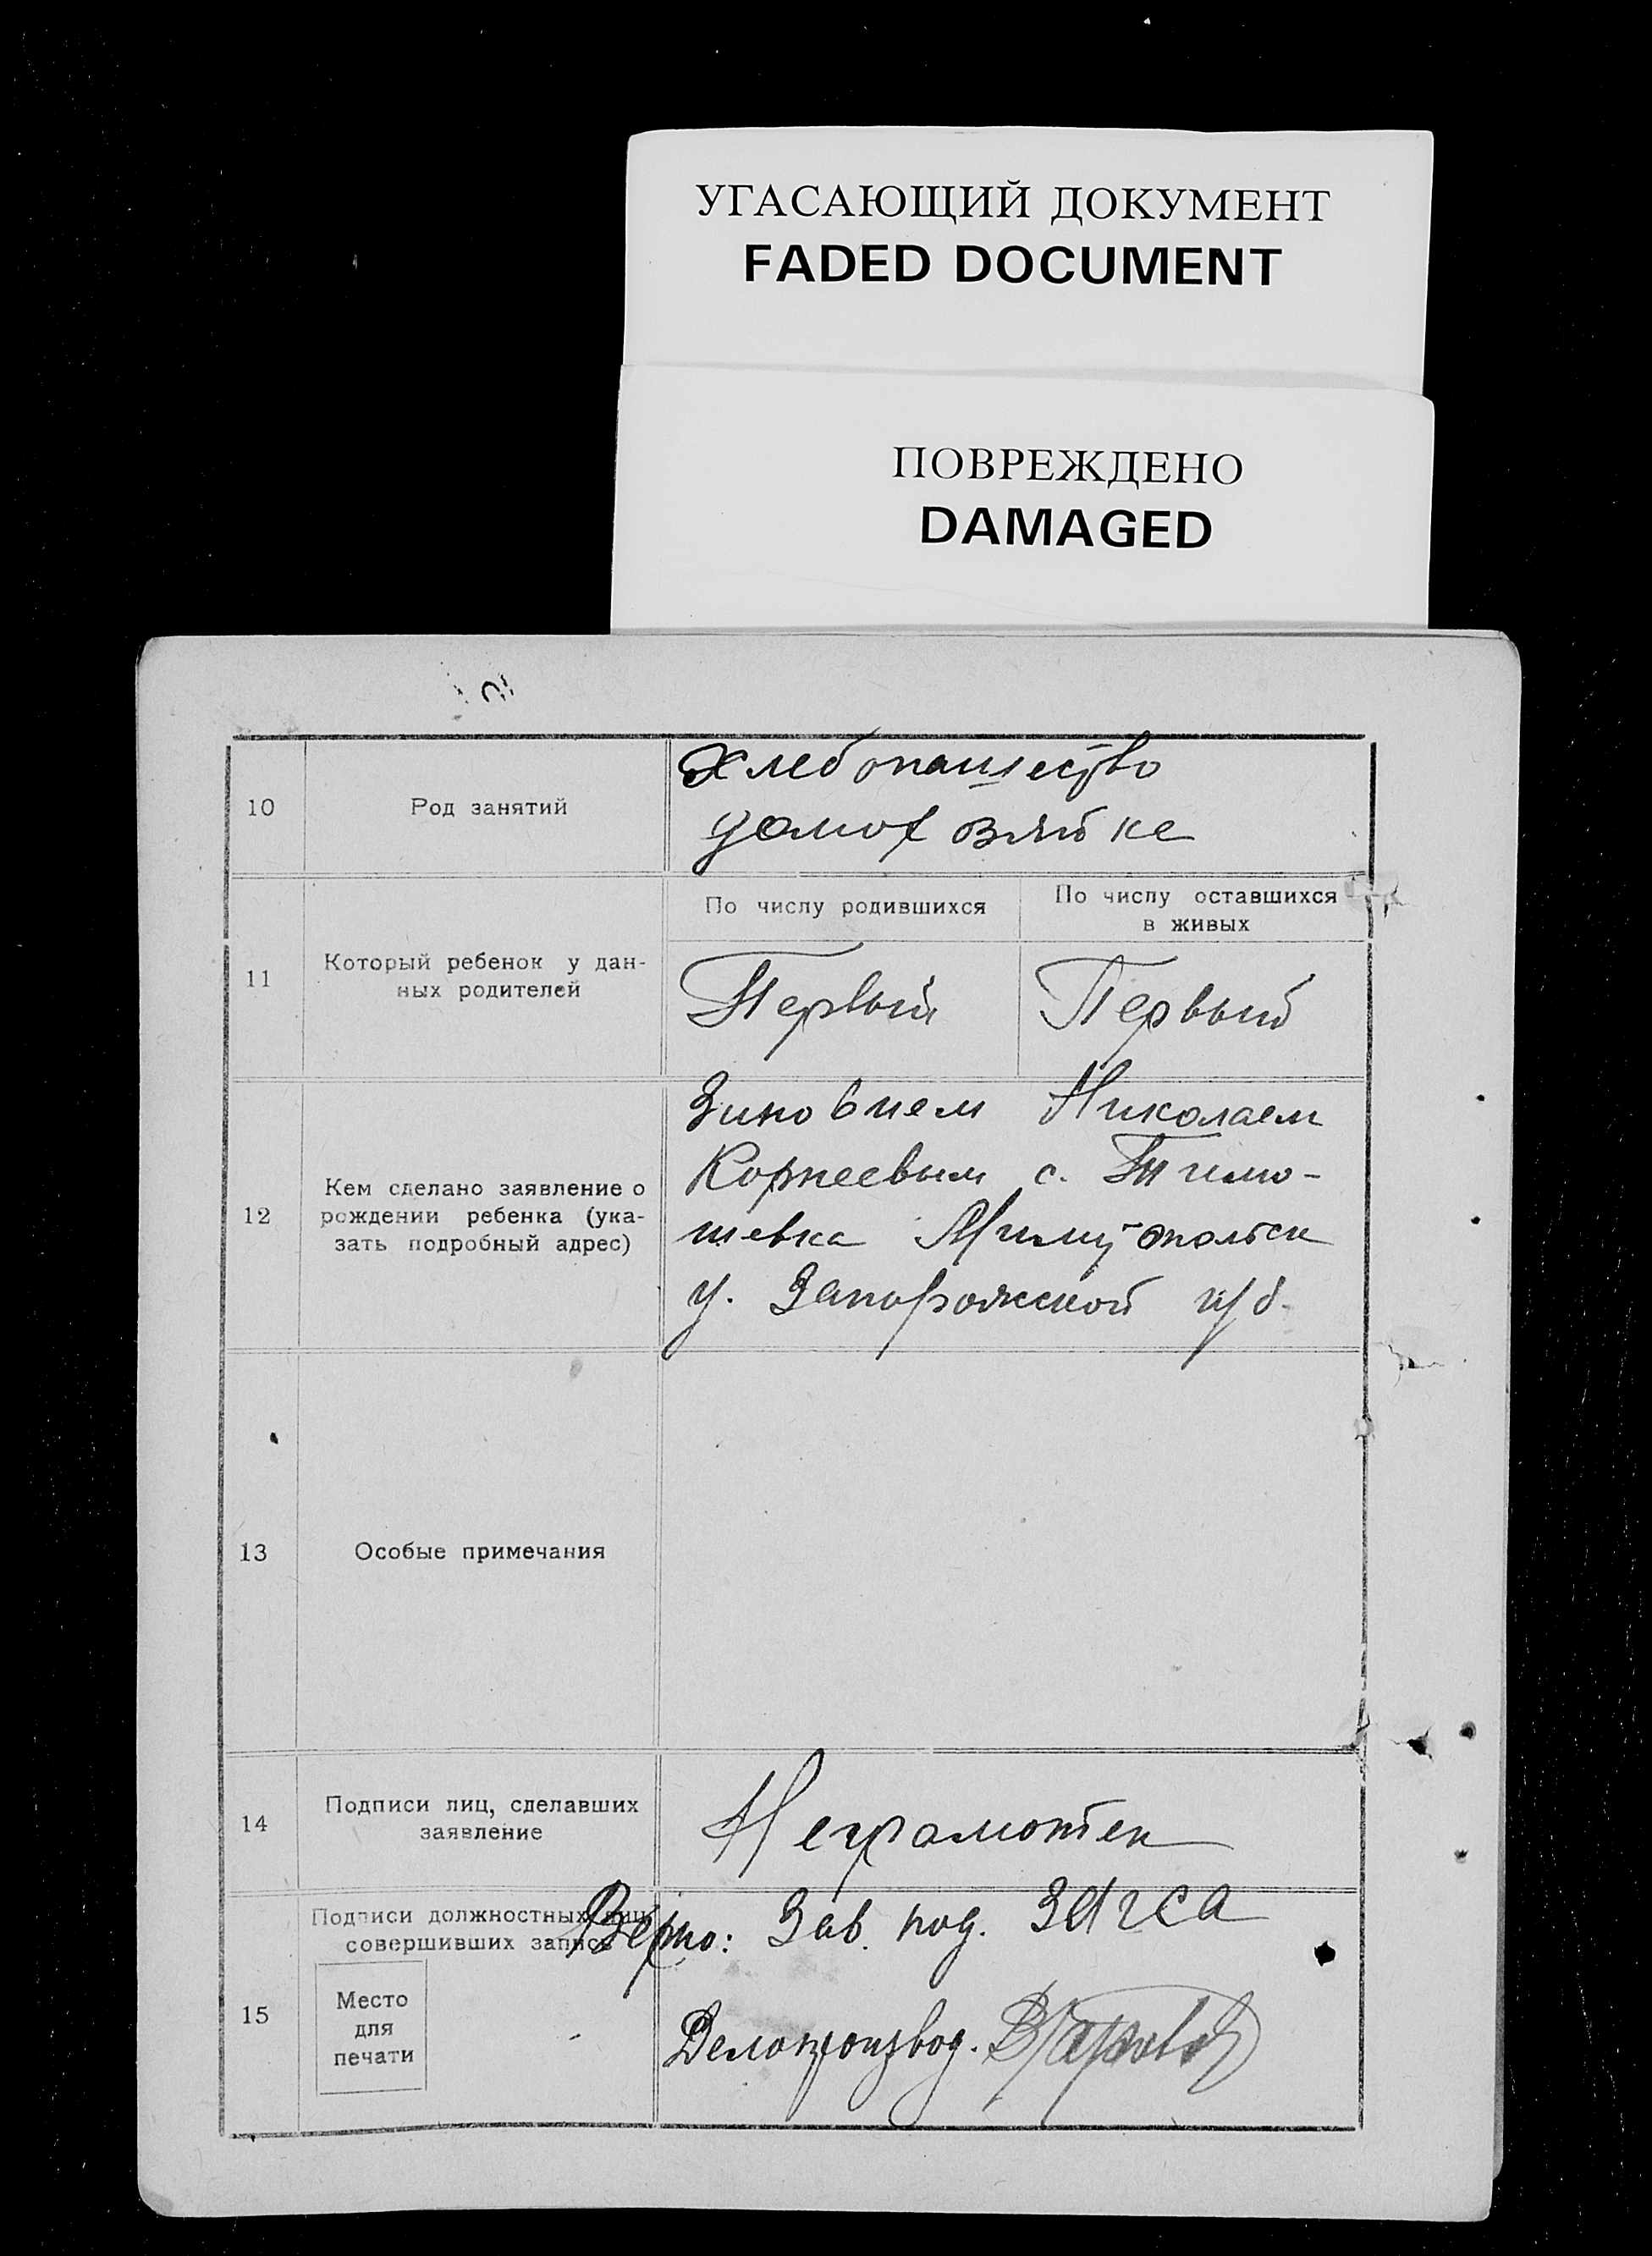 УГАСАЮЩИЙ ДОКУМЕНТ
FADED DOCUMENT
ПОВРЕЖДЕНО
DAMAGED
10
Род занятий
Хлебопашество
домохозяйке
11
Который ребенок у дан-
ных родителей
По числу родившихся
По числу оставшихся
в живых
Первый
Первый
12
Кем сделано заявление о
рождении ребенка (ука-
зать подробный адрес)
Зиновием Николаем
Корнеевым с. Тимо-
шевка
у. Запорожской губ.
13
Особые примечания
14
Подписи лиц, сделавших
заявление
Неграмотен
15
Подписи должностных лиц,
совершивших запись
Верно: Зав. под. ЗАГСА
Место
для
печати
Делопроизвод.